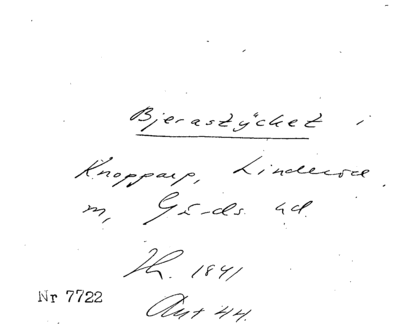 Bjerastycket i
Knopparp, Linderöd
m, Gärds hd.
Th. 1841
Nr 7722
Ant 44.